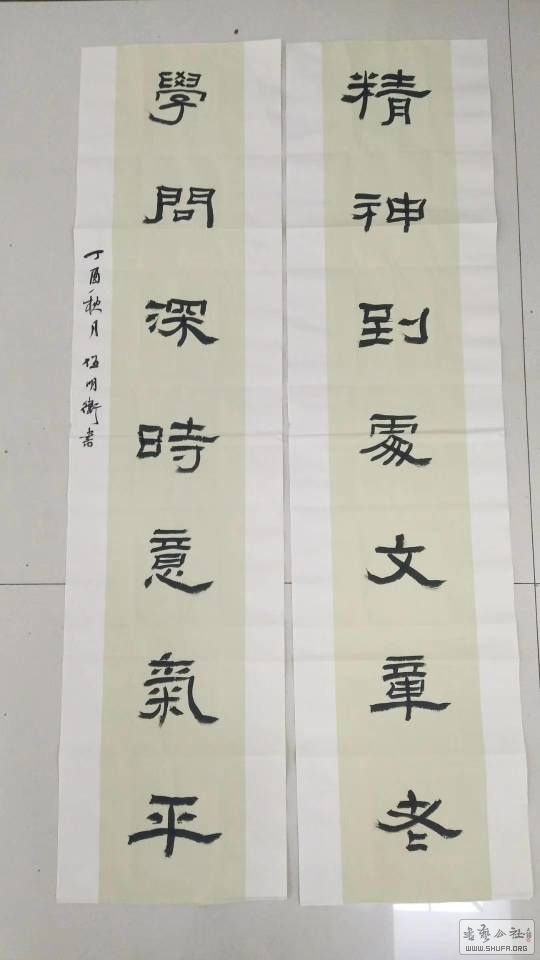 精神到處文章老
學問深時意氣平
丁酉秋月伍明衛書
書藝公社
WWW.SHUFA.ORG